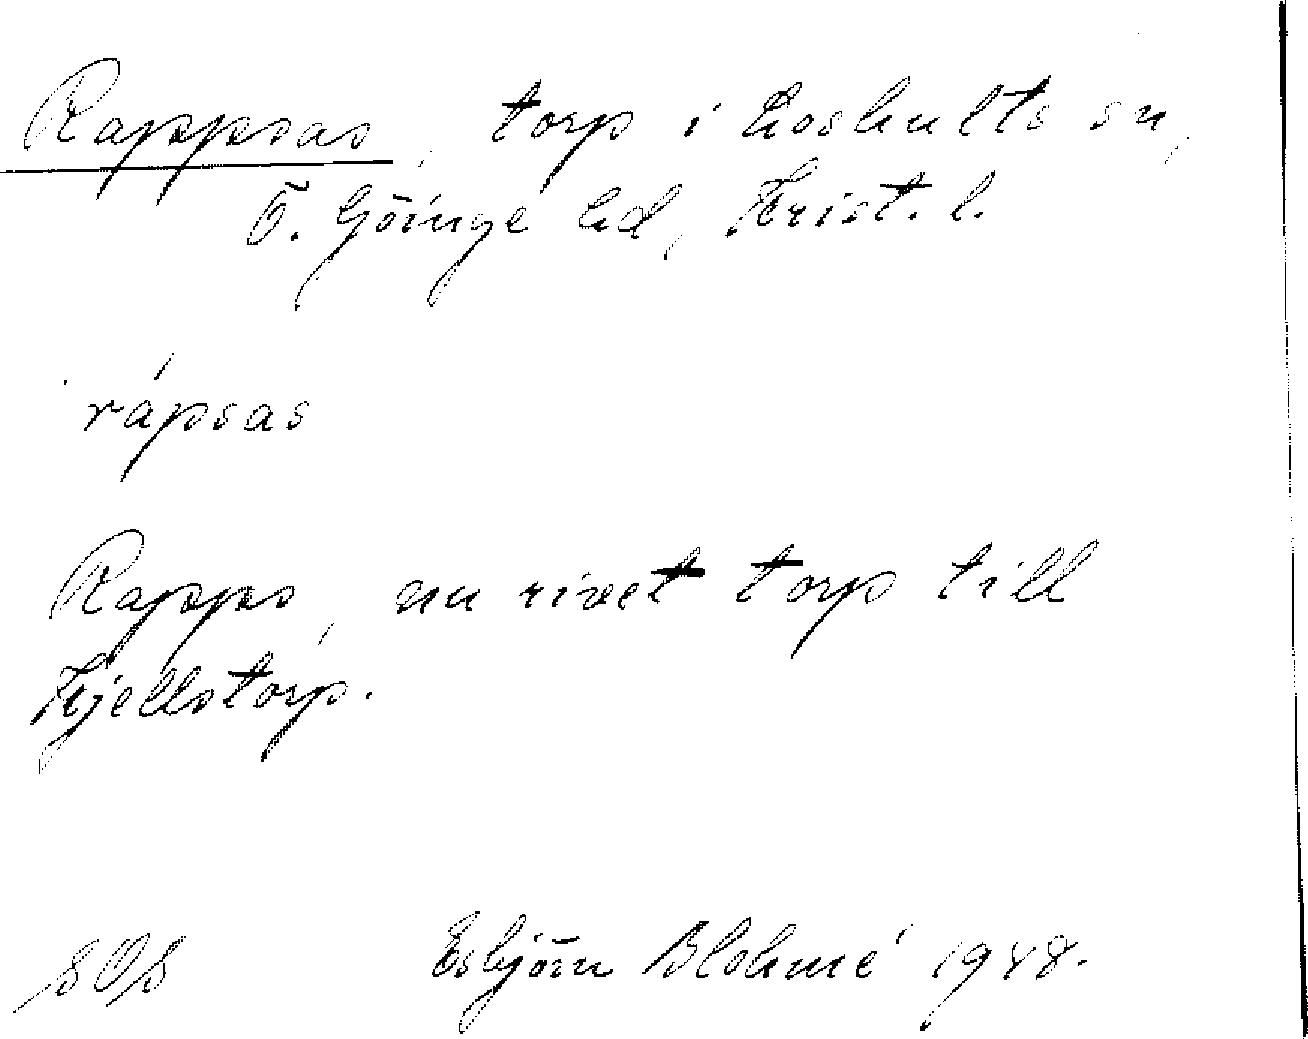 Rappsas, torp i Loshults sn,
Ö. Göinge hd, Krist. l.
rápsas
Rapps, nu rivet torp till
Kjellstorp.
SOS Esbjörn Blohmé 1948.